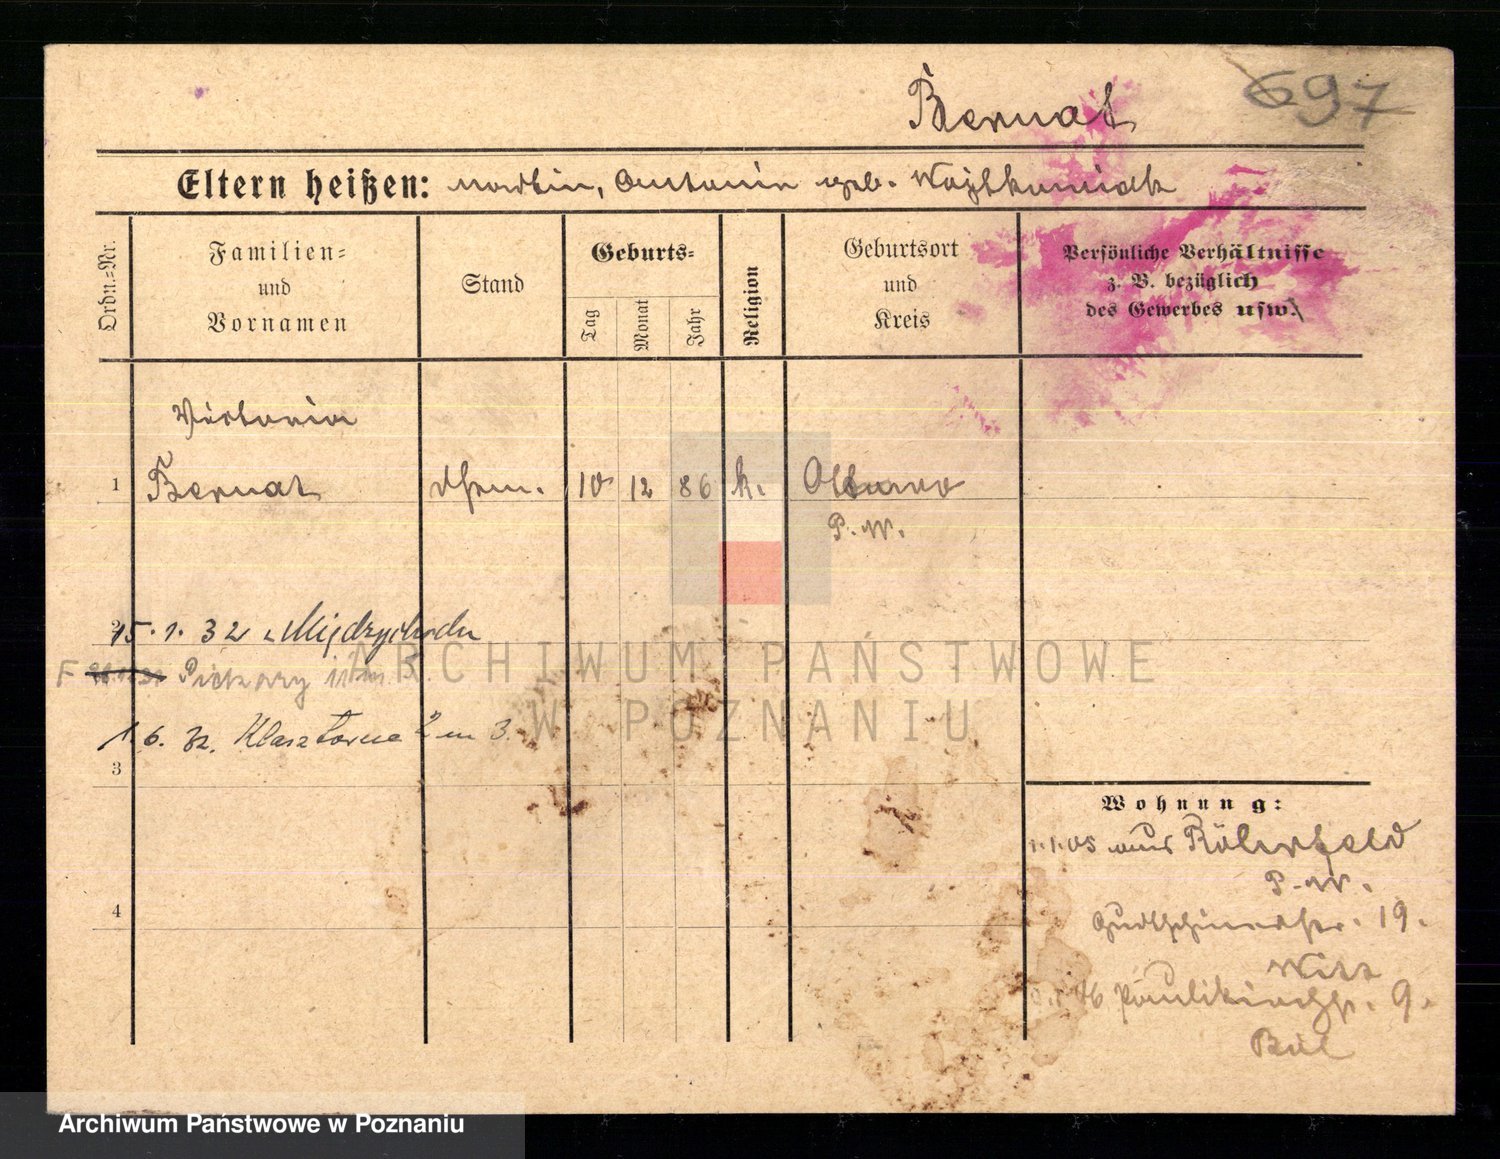 697
Bernat
Eltern heißen: Martin, Antonie geb. Wojtkowiak
Ordn.-Nr.
Familien-
und
Vornamen
Stand
Geburts-
Tag
Monat
Jahr
Religion
Geburtsort
und
Kreis
Persönliche Verhältnisse
z. B. bezüglich
des Gewerbes usw.
Victoria
1 Bernat 10 12 86 k.
P. W.
2
15. 1. 32 Międzychodu
F Piekary
1. 6. 32. Klasztorna 2 m 3.
3
4
Wohnung:
1.1.05 aus Röhrfeld
P. W.
19.
Witt
Paulikirchstr. 9.
ARCHIWUM PAŃSTWOWE
W POZNANIU
Archiwum Państwowe w Poznaniu